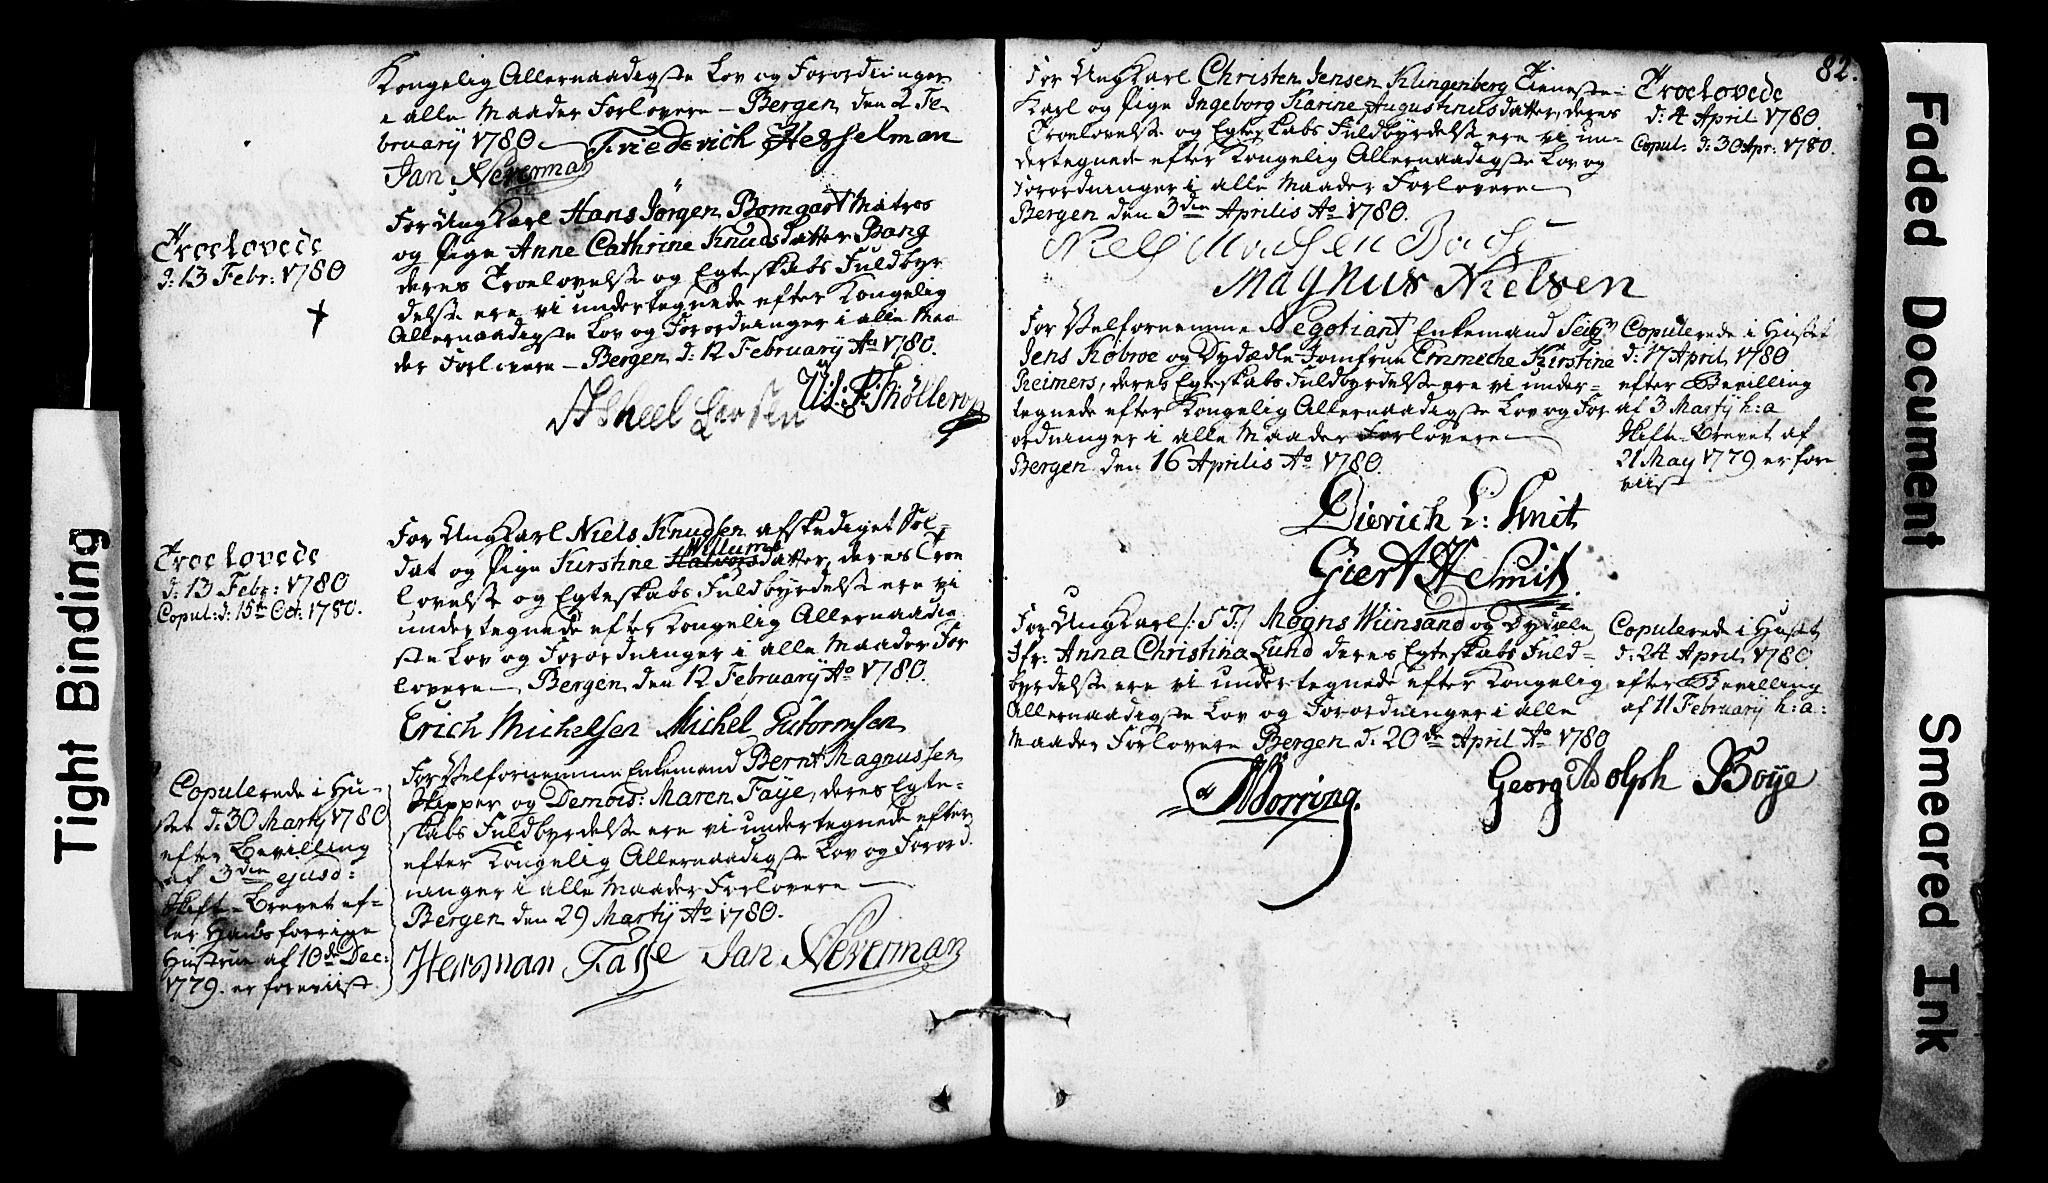 Kongelig Allernaadigste Lov og Forordninger
i alle Maader Forlovere – Bergen den 2 Fe-
bruarij 1780 – Friederich Hesselman
Jan Neverman
Troelovede
d: 13 Febr: 1780
For Ung Karl Hans Jörgen Bomgart Matros
og Pige Anne Cathrine Knuds datter Bang
deres Troelovelse og Egteskabs Fuldbyr
delse ere vi undertegnede efter Kongelig
Allernaadigste Lov og Forordninger i alle Maa
der Forlovere – Bergen d: 12 February Ao 1780.
Troelovede
d: 13 Febr: 1780
Copul: d: 15te Oct: 1780.
For Ung Karl Niels Knudsen afskediget Sol-
dat og Pige Kirstine Halvors Willums datter, deres Troe
lovelse og Egteskabs Fuldbyrdelse ere vi
undertegnede efter Kongelig Allernaadig
ste Lov og Forordninger i alle Maader For
lovere – Bergen den 12 February Ao 1780.
Erich Michelsen Michel Guttormsen
Copulerede i Hu-
set d: 30 Martij 1780
efter Bevilling
af 3die ejusd:
Skift-Brevet ef-
ter Hands forrige
Hustrue af 10de Dec:
1779. er foreviist
For Velfornemme Enkemand Bernt Magnussen
Skipper og Demois: Maren Faÿe, deres Egte-
skabs Fuldbyrdelse ere vi undertegnede efter
efter Kongelig Allernaadigste Lov og Forord
ninger i alle Maader Forlovere –
Bergen den 29 Martij Ao 1780.
Herman Faÿe Jan Neverman
82.
For Ung Karl Christen Jensen Klingenberg Tieneste-
Karl og Pige Ingeborg Karine Augustinusdatter, deres
Troelovelse og Egteskabs Fuldbyrdelse ere vi un-
dertegnede efter Kongelig Allernaadigste Lov og
Forordninger i alle Maader Forlovere –
Bergen den 3die Aprilis Ao 1780.
Troelovede
d: 4 April 1780
Copul: d: 30 Apr: 1780.
Magnus Nielsen
For Velfornemme Negotiant Enkemand Seigr
Jens Köbroe og Dydædle Jomfrue Emmeche Kirstine
Reimers, deres Egteskabs Fuldbyrdelse ere vi under-
tegnede efter Kongelig Allernaadigste Lov og For
ordninger i alle Maader Forlovere –
Bergen den 16 Aprilis Ao 1780.
Copulerede i Huset
d: 17 April 1780
efter Bevilling
af 3 Martij h: a
Skifte-Brevet af
21 May 1779 er fore
viist
Dierich L: Smit
Giert H Smit
For Ung Karl /: S T:/ Mogns Wiinsand og Dydædle
Jfr: Anna Christina Lund deres Egteskabs Fuld-
byrdelse ere vi undertegnede efter Kongelig
Allernaadigste Lov og Forordninger i alle
Maader Forlovere Bergen d: 20de April Ao 1780
Copulerede i Huset
d: 24 April 1780
efter Bevilling
af 11 February h: a:
Georg Adolph Boÿe
Tight Binding
Faded Document
Smeared Ink